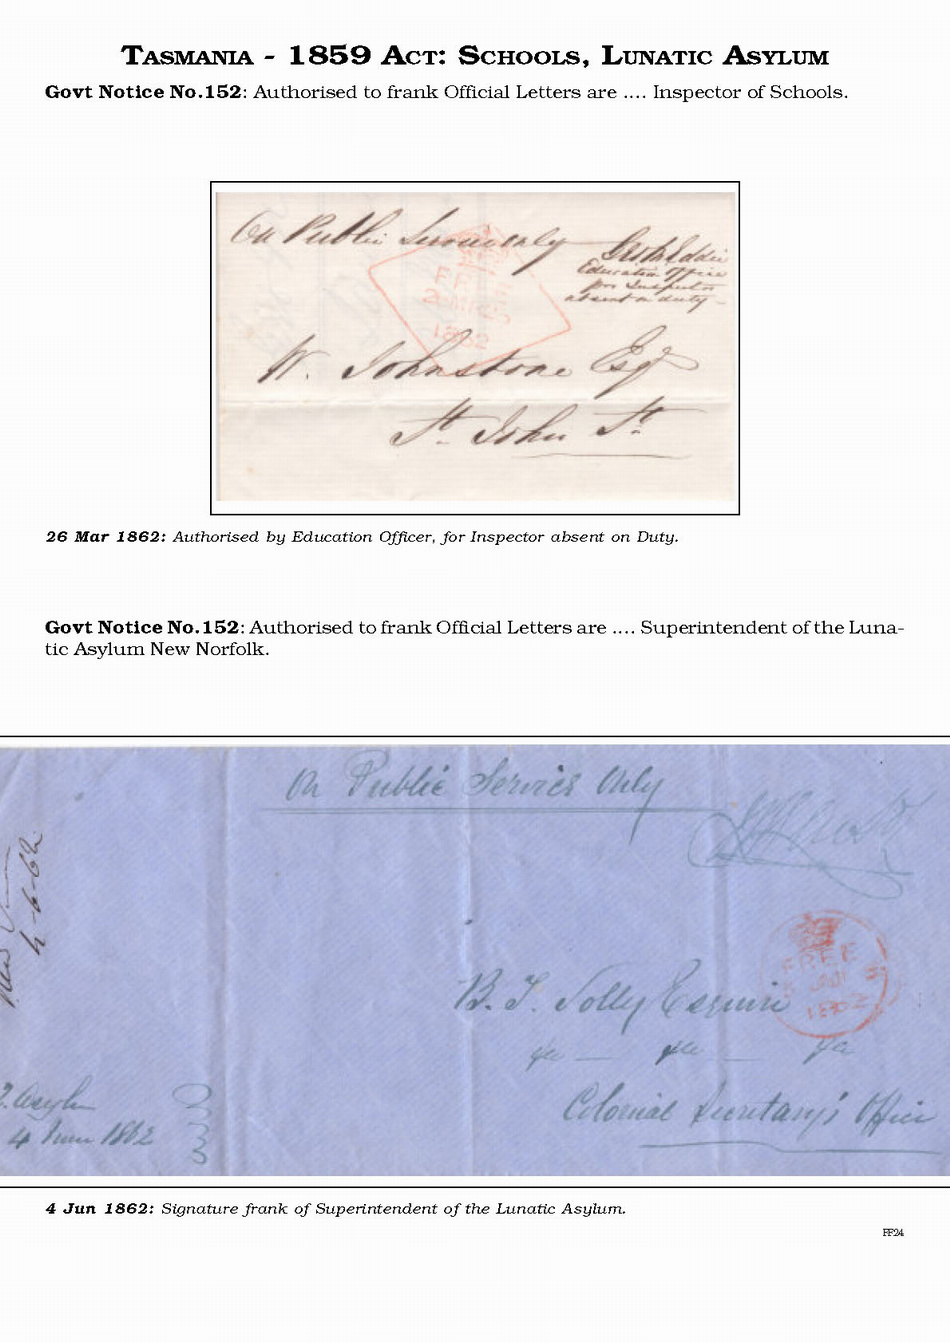 TASMANIA - 1859 ACT: SCHOOLS, LUNATIC ASYLUM
Govt Notice No.152: Authorised to frank Official Letters are .... Inspector of Schools.
On Public Service only
Education Office
for Inspector
absent on duty
1862
W. Johnstone Esqr
St. John St.
26 Mar 1862: Authorised by Education Officer, for Inspector absent on Duty.
Govt Notice No.152: Authorised to frank Official Letters are .... Superintendent of the Luna-
tic Asylum New Norfolk.
On Public Service Only
4-6-62
FREE
1862
B. T. Solly Esquire
Colonial Secretary's Office
Asylum
4 June 1862
4 Jun 1862: Signature frank of Superintendent of the Lunatic Asylum.
FF24